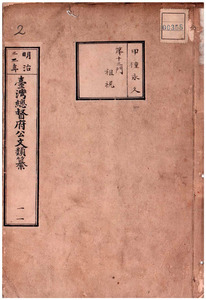 2
00356
甲種永久
第十三門
租税
明治三十一年
臺灣總督府公文類纂
一一